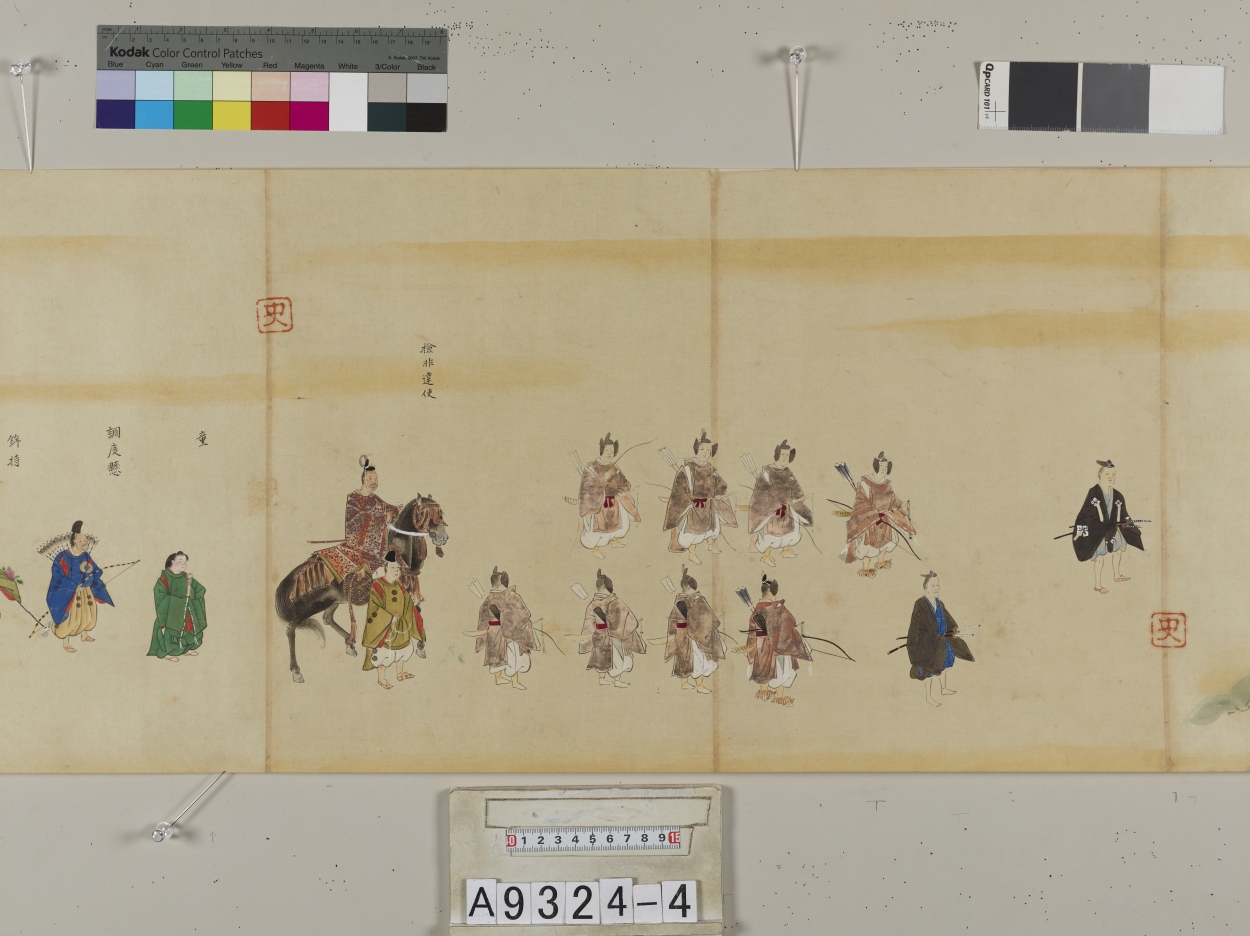 Kodak Color Control Patches
Blue Cyan Green Yellow Red Magenta White 3/Color Black
QPCARD 101
史
檢非違使
童
調度懸
鉾持
史
0 1 2 3 4 5 6 7 8 9
A9324-4